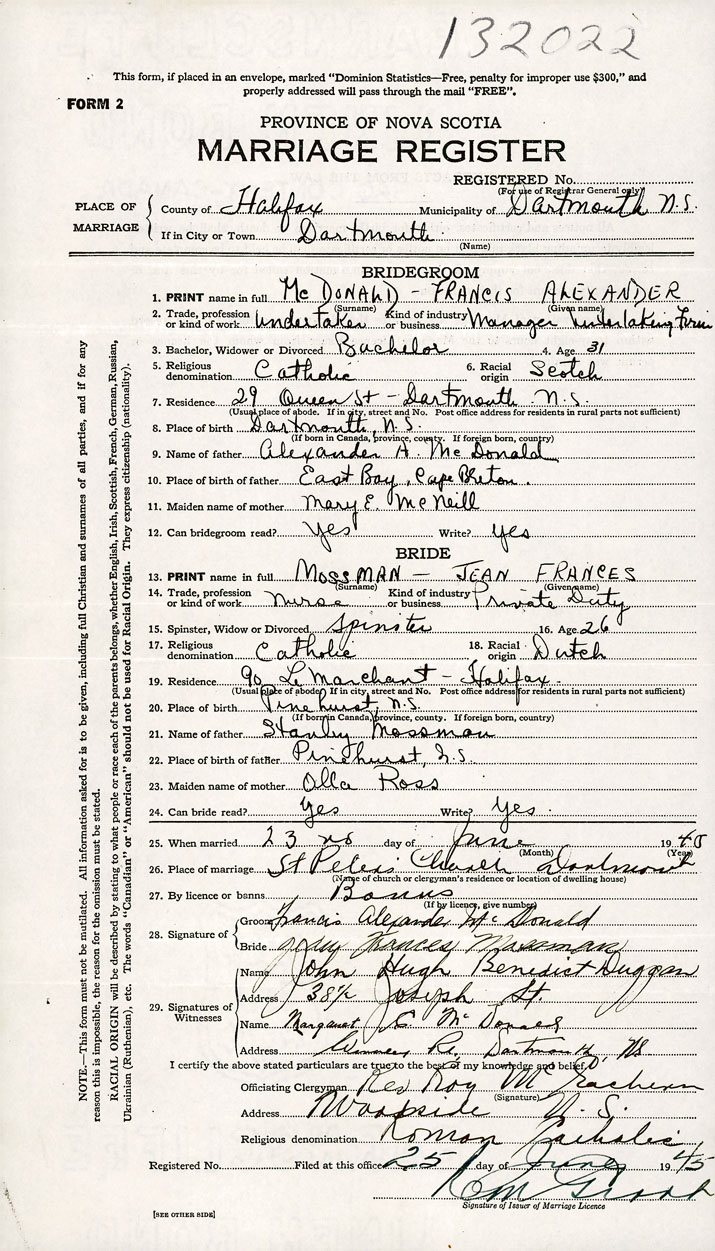 132022
This form, if placed in an envelope, marked "Dominion Statistics—Free, penalty for improper use $300," and
properly addressed will pass through the mail "FREE".
FORM 2
PROVINCE OF NOVA SCOTIA
MARRIAGE REGISTER
REGISTERED No.
(For use of Registrar General only)
PLACE OF MARRIAGE
County of Halifax Municipality of Dartmouth N.S.
If in City or Town Dartmouth
(Name)
BRIDEGROOM
1. PRINT name in full McDONALD - FRANCIS ALEXANDER
(Surname) (Given name)
2. Trade, profession or kind of work Undertaker Kind of industry or business Manager Undertaking Firm
3. Bachelor, Widower or Divorced Bachelor 4. Age 31
5. Religious denomination Catholic 6. Racial origin Scotch
7. Residence 29 Queen St - Dartmouth N.S.
(Usual place of abode. If in city, street and No. Post office address for residents in rural parts not sufficient)
8. Place of birth Dartmouth, N.S.
(If born in Canada, province, county. If foreign born, country)
9. Name of father Alexander A. McDonald
10. Place of birth of father East Bay, Cape Breton.
11. Maiden name of mother Mary E. McNeill
12. Can bridegroom read? Yes Write? Yes
BRIDE
13. PRINT name in full MOSSMAN - JEAN FRANCES
(Surname) (Given name)
14. Trade, profession or kind of work Nurse Kind of industry or business Private Duty
15. Spinster, Widow or Divorced Spinster 16. Age 26
17. Religious denomination Catholic 18. Racial origin Dutch
19. Residence 90 Le Marchant - Halifax.
(Usual place of abode. If in city, street and No. Post office address for residents in rural parts not sufficient)
20. Place of birth Pinehurst, N.S.
(If born in Canada, province, county. If foreign born, country)
21. Name of father Stanley Mossman
22. Place of birth of father Pinehurst, N.S.
23. Maiden name of mother Olla Ross
24. Can bride read? Yes Write? Yes.
25. When married 23rd day of June 1940
(Month) (Year)
26. Place of marriage St Peters Church Dartmouth
(Name of church or clergyman's residence or location of dwelling house)
27. By licence or banns Banns
(If by licence, give number)
28. Signature of
Groom Francis Alexander McDonald
Bride Jean Frances Mossman
29. Signatures of Witnesses
Name John Hugh Benedict Duggan
Address 38½ Joseph St.
Name Margaret E. McDonald
Address Rd. Dartmouth, NS
I certify the above stated particulars are true to the best of my knowledge and belief.
Officiating Clergyman Rev Roy McEachern
(Signature)
Address Woodside N.S.
Religious denomination Roman Catholic
Registered No. Filed at this office 25 day of June 1945
Signature of Issuer of Marriage Licence
[SEE OTHER SIDE]
NOTE.—This form must not be mutilated. All information asked for is to be given, including full Christian and surnames of all parties, and if for any
reason this is impossible, the reason for the omission must be stated.
RACIAL ORIGIN will be described by stating to what people or race each of the parents belongs, whether English, Irish, Scottish, French, German, Russian,
Ukrainian (Ruthenian), etc. The words "Canadian" or "American" should not be used for Racial Origin. They express citizenship (nationality).